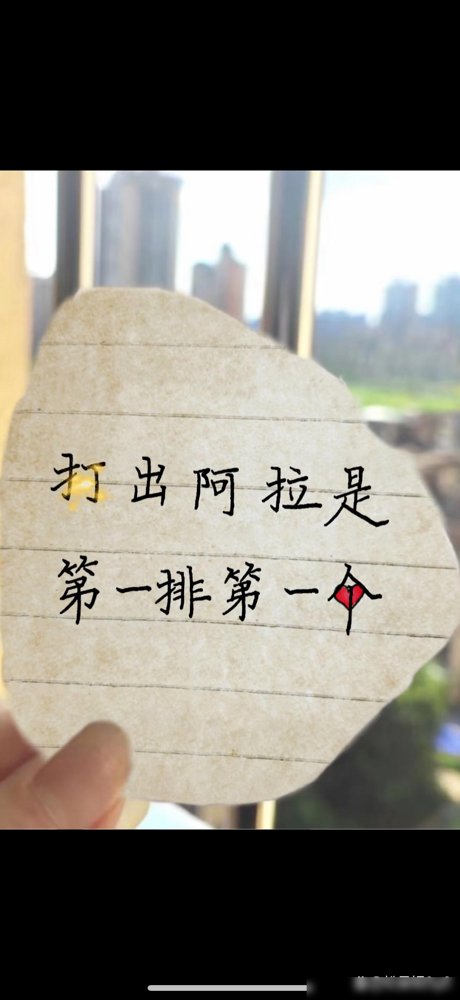 打出阿拉是
第一排第一个